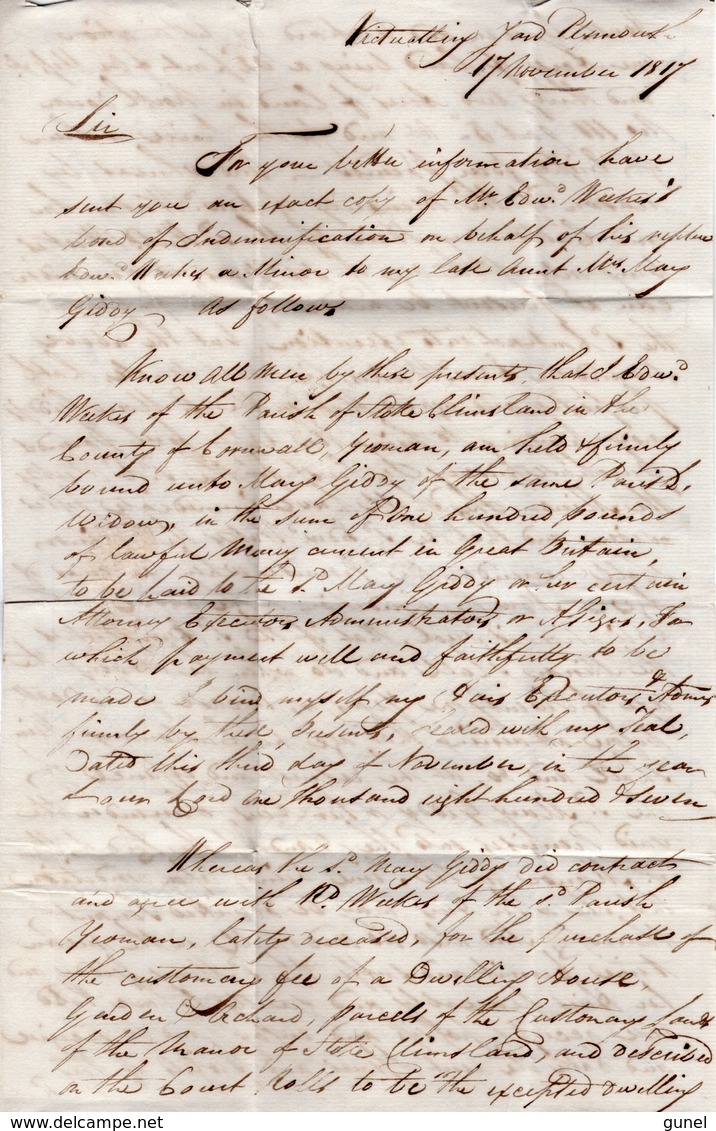 Victualling Yard Plymouth
17 November 1817
Sir
For your better information have
sent you an exact copy of Mr Edwd Weekes's
bond of Indemnification on behalf of his nephew
Edwd Weekes a Minor to my late Aunt Mrs Mary
Giddy as follows
Know all Men by these presents, that I Edwd
Weekes of the Parish of Stoke Climsland in the
County of Cornwall, Yeoman, am held & firmly
bound unto Mary Giddy of the same Parish,
Widow, in the sum of One hundred pounds
of lawful Money current in Great Britain,
to be paid to the sd Mary Giddy or her certain
Attorney Executors Administrators or Assigns, For
which payment well and faithfully to be
made I bind myself my Heirs Executors & Admrs
firmly by these Presents, Sealed with my Seal,
Dated this third day of November, in the year
of our Lord one thousand eight hundred & seven
Whereas the sd Mary Giddy did contract
and agree with Rd Weekes of the sd Parish
Yeoman, lately deceased, for the purchase of
the customary fee of a Dwelling House,
Garden & Orchard, parcels of the Customary Lands
of the Manor of Stoke Climsland, and described
on the Court Rolls to be the excepted dwelling
gunel